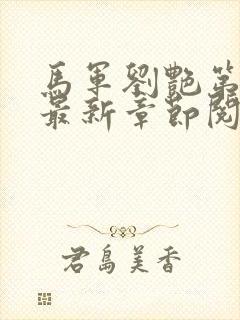 馬軍劉艷第
最新章節閱
君島美香